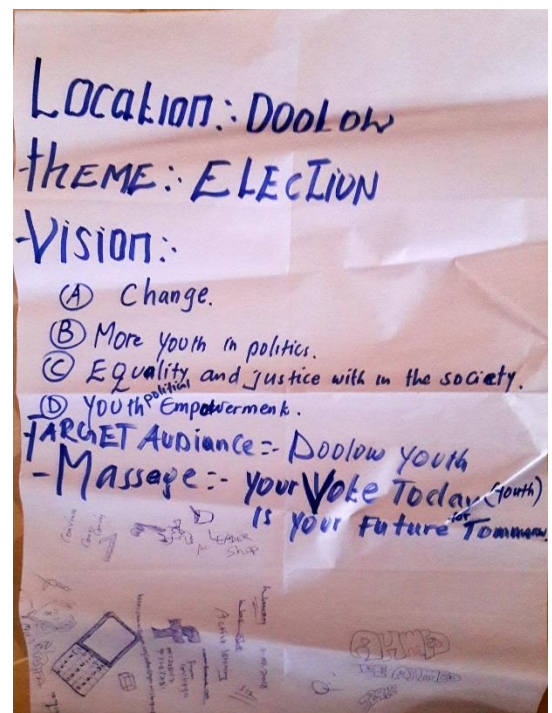 Location:. DOOLOW
-tHEME:. ELECTION
-Vision:.
(A) Change.
(B) More youth in politics.
(C) Equality and justice with in the society.
(D) YOUTH political Empowerment.
-TARGET AUDIANCE:- Doolow youth
-Massage:- your Vote Today (youth)
is your Future for Tommorow.